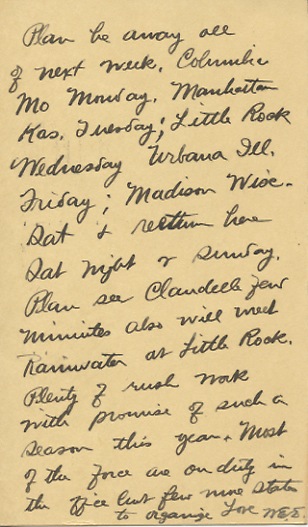 Plan be away all
of next week. Columbia
Mo Monday. Manhattan
Kas. Tuesday; Little Rock
Wednesday Urbana Ill.
Friday; Madison Wisc.
Sat & return here
Sat night or Sunday.
Plan see Claudell few
minutes also will meet
Rainwater at Little Rock.
Plenty of rush work
with promise of such a
season this year. Most
of the force are on duty in
the office but few more states
to organize Love